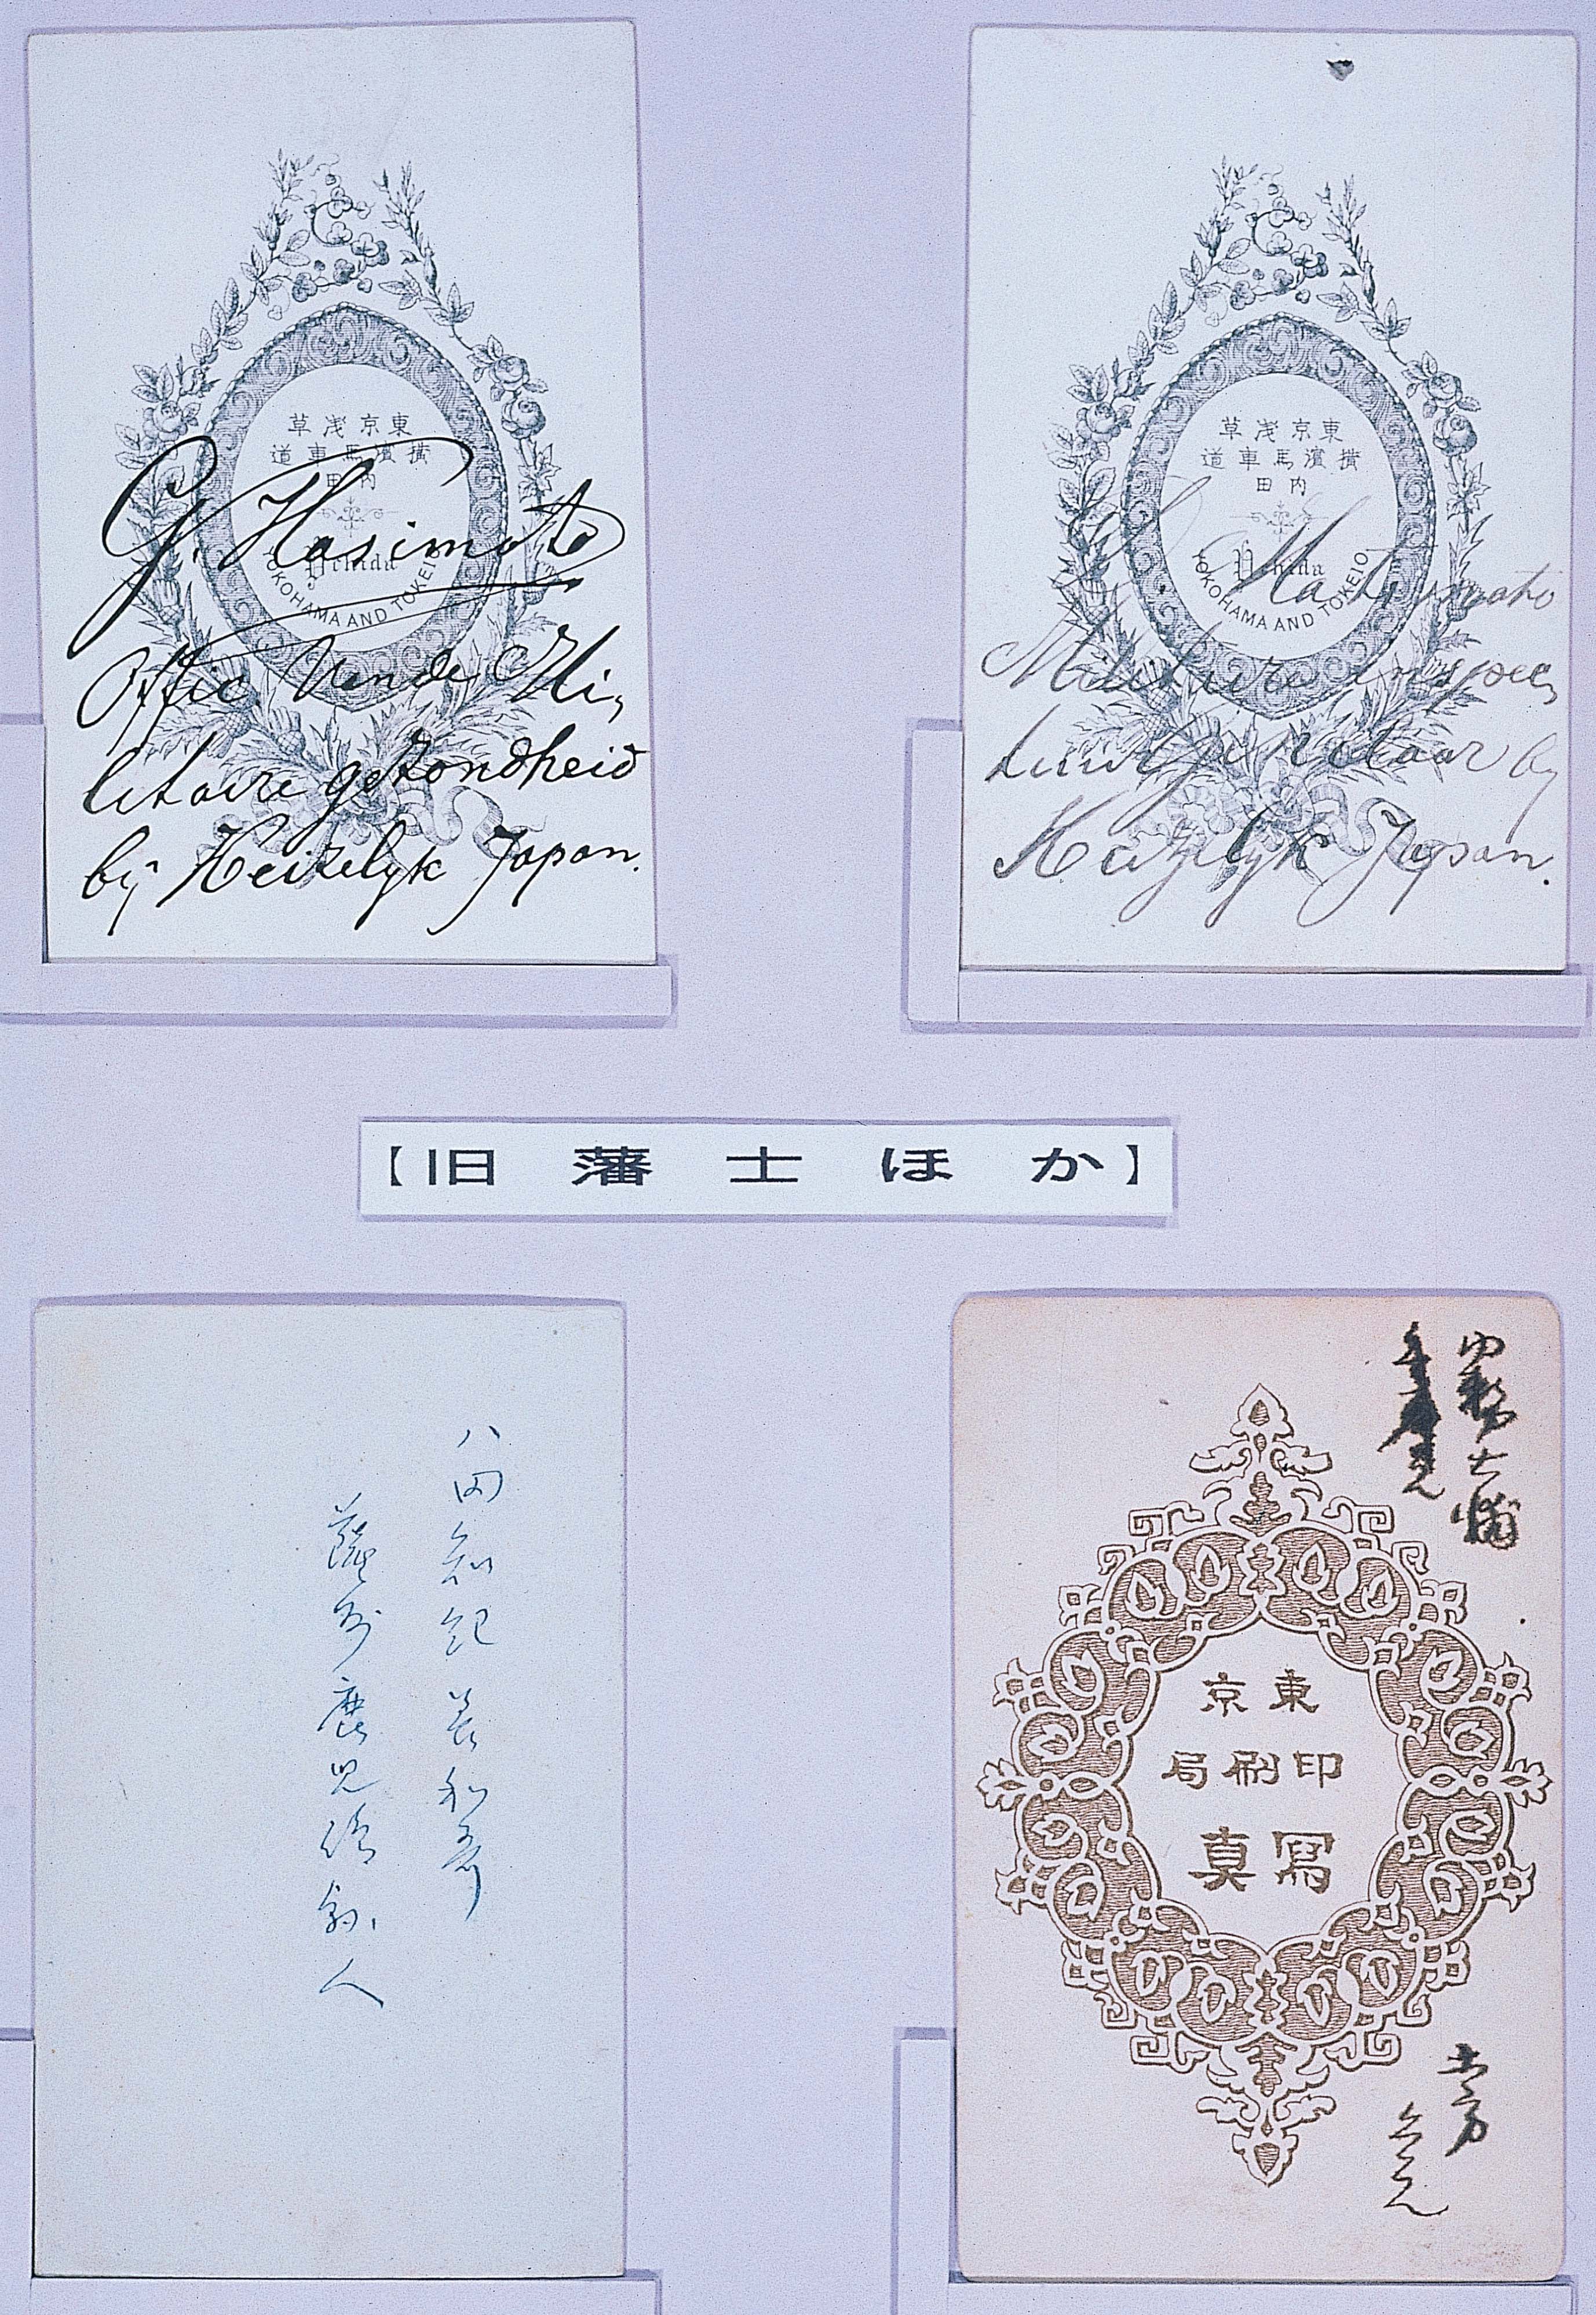 東京淺草
橫濱馬車道
内田
Uchida
YOKOHAMA AND TOKEIO
G. Hasimoto
Offic van de Mi,
litaire gezondheid
by Keizelyk Japan.
東京淺草
橫濱馬車道
内田
Uchida
YOKOHAMA AND TOKEIO
Matsumoto
Militaire inspec,
by
Keizelyk Japan.
【旧藩士ほか】
八田知紀 善和歌
薩州鹿児島人
東京
印刷局
寫真